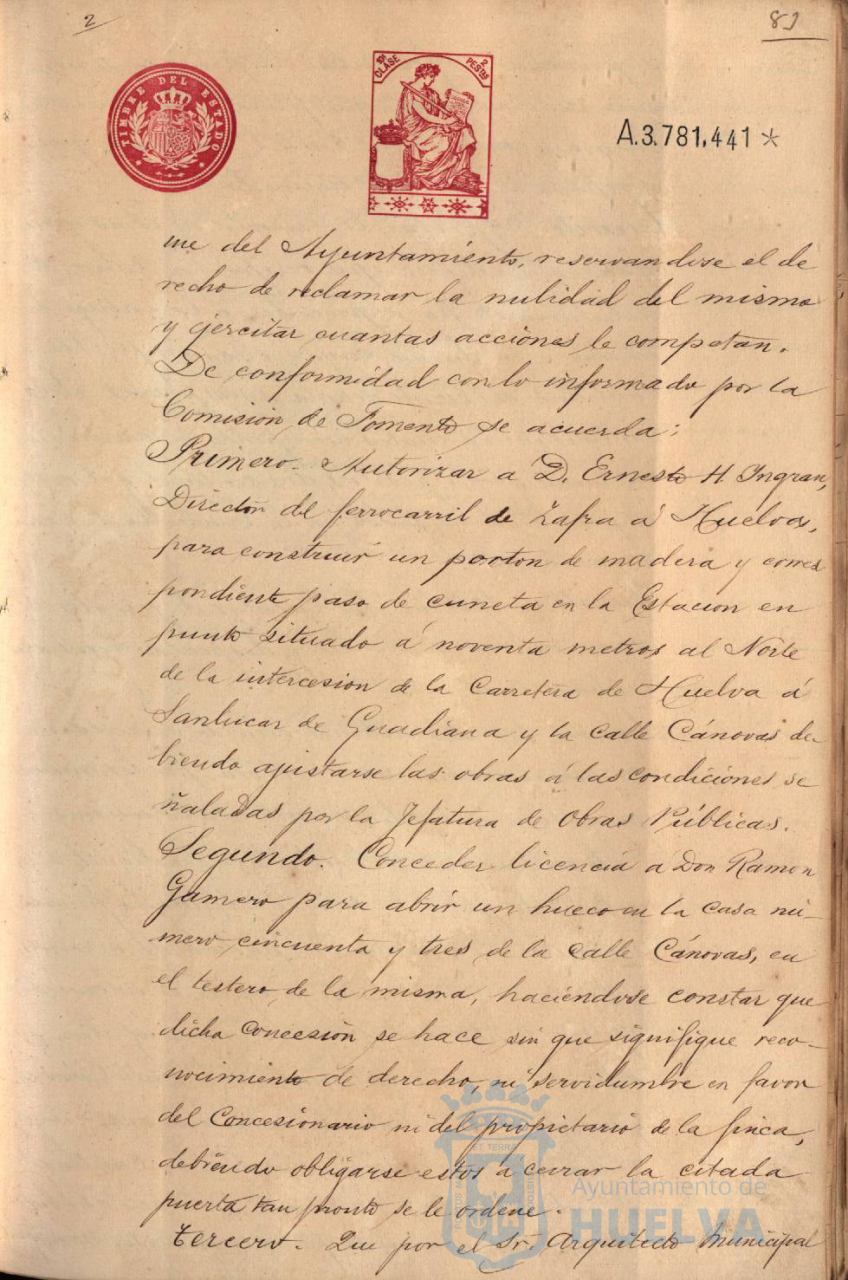 2
83
TIMBRE DEL ESTADO
10ª CLASE 2 PESTAS
A.3.781,441 *
me del Ayuntamiento, reservandose el de
recho de reclamar la nulidad del mismo
y ejercitar cuantas acciones le competan.
De conformidad con lo informado por la
Comisión de Fomento se acuerda:
Primero. Autorizar á D. Ernesto H. Ingran,
Director del ferrocarril de Zafra á Huelva,
para construir un porton de madera y corres
pondiente paso de cuneta en la Estacion en
punto situado á noventa metros al Norte
de la intercesion de la Carretera de Huelva á
Sanlucar de Guadiana y la calle Cánovas de-
biendo ajustarse las obras á las condiciones se
ñaladas por la Jefatura de Obras Públicas.
Segundo. Conceder licencia á Don Ramon
Gamero para abrir un hueco en la casa nú-
mero cincuenta y tres de la calle Cánovas, en
el testero de la misma, haciéndose constar que
dicha Concesión se hace sin que signifique reco-
nocimiento de derecho, ni servidumbre en favor
del Concesionario ni del propietario de la finca,
debiendo obligarse estos á cerrar la citada
puerta tan pronto se le ordene.
Tercero. Que por el Sr. Arquitecto Municipal
Ayuntamiento de
HUELVA